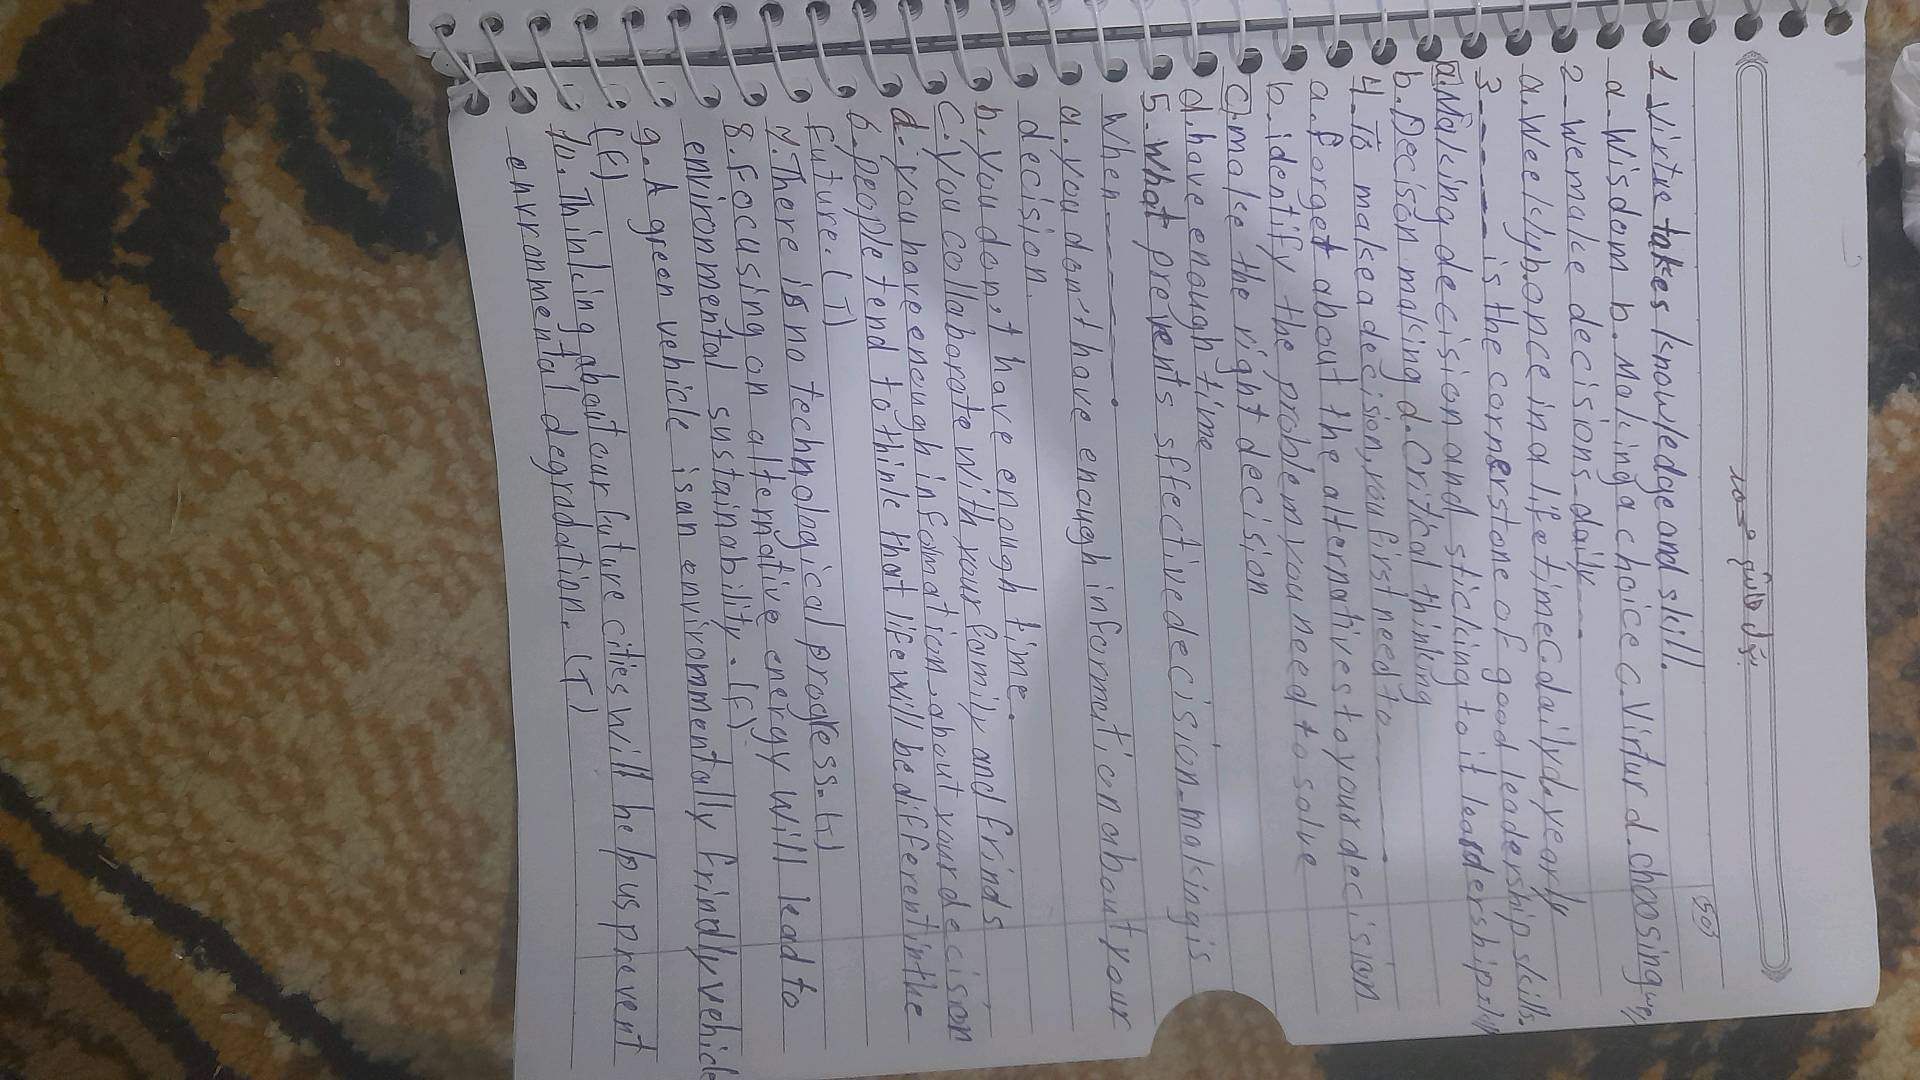 1. Virtue takes knowledge and skill.
a. Wisdom b. Making a choice c. Virtur d. choosing
2- We make decisions-daily---.
a. Weekly b. once in a life time c. daily d. yearly
3------ is the cornerstone of good leadership skills.
a. Making decision and sticking to it leardership
b. Decison making d. Critical thinking
4-To maksea decision, you first need to ------
a. forget about the alternatives to your decision
b. identify the problem you need to solve
c. make the right decision
d. have enough time
5-What prevents sffective decision-making is
When ------.
a. you don't have enough information about your
decision.
b. you don,t have enough time.
C. you collaborate with your family and frinds
d. you have enough infomation about your decison
6-people tend to think that life will be different in the
future. (T)
7. There is no technological progress. (T)
8. Focusing on alternative energy will lead to
environmental sustainability. (F)
9. A green vehicle is an environmentally frindly vehicle
(F)
10. Thinking about our future cities will help us prevent
environmental degradation. (T)